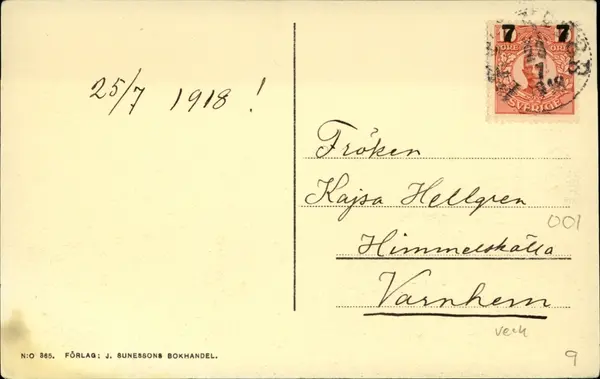 25/7 1918 !
7 7
ÖRE ÖRE
SVERIGE
Fröken
Kajsa Hellgren
001
Himmelskälla
Varnhem
verk
9
N:O 365. FÖRLAG: J. SUNESSONS BOKHANDEL.